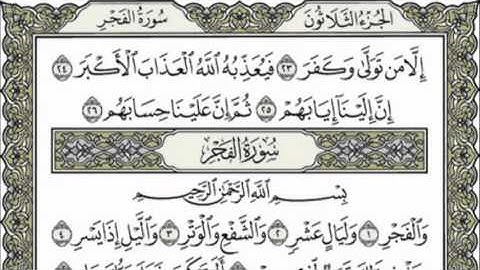 الجُزْءُ الثَّلَاثُونَ سُورَةُ الفَجْرِ
إِلَّا مَن تَوَلَّىٰ وَكَفَرَ ٢٣ فَيُعَذِّبُهُ اللَّهُ الْعَذَابَ الْأَكْبَرَ ٢٤
إِنَّ إِلَيْنَا إِيَابَهُمْ ٢٥ ثُمَّ إِنَّ عَلَيْنَا حِسَابَهُم ٢٦
سُورَةُ الفَجْرِ
بِسْمِ اللَّهِ الرَّحْمَٰنِ الرَّحِيمِ
وَالْفَجْرِ ١ وَلَيَالٍ عَشْرٍ ٢ وَالشَّفْعِ وَالْوَتْرِ ٣ وَاللَّيْلِ إِذَا يَسْرِ ٤